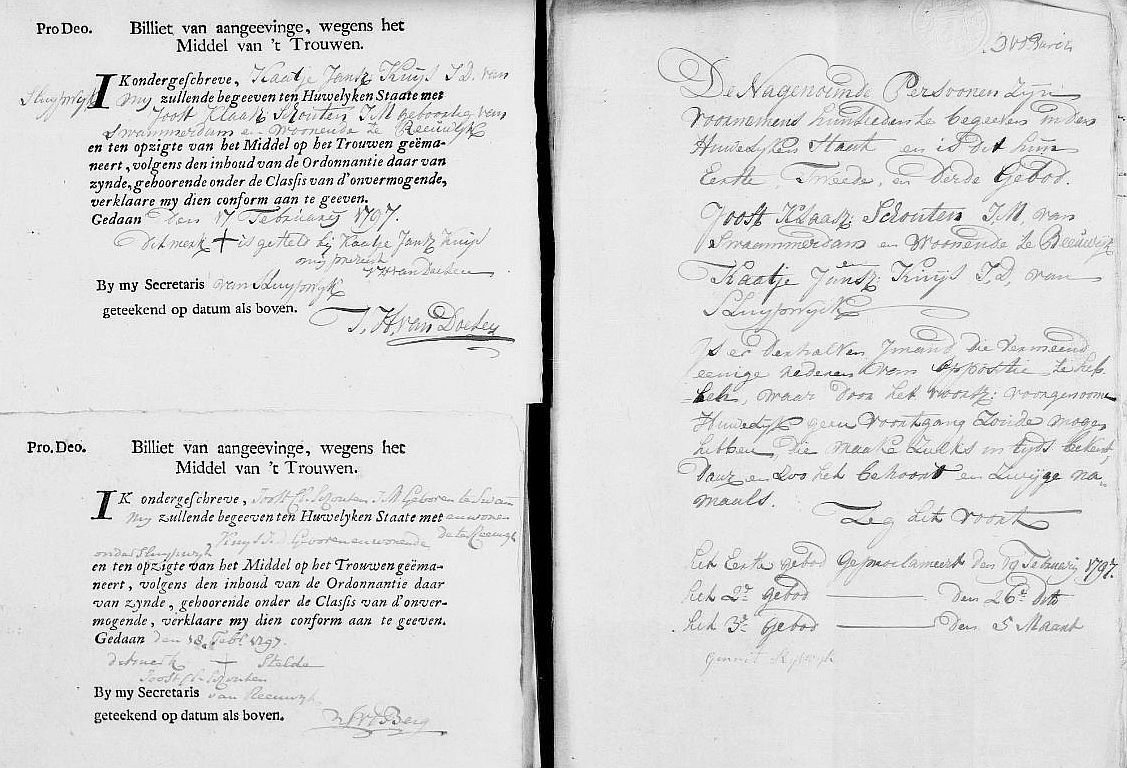 Pro Deo.
Billiet van aangeevinge, wegens het
Middel van 't Trouwen.
IK ondergeschreve, Kaatje Jansz Kruijs J.D. van
Sluypwyk my zullende begeeven ten Huwelyken Staate met
Joost Klaasz Schouten J:M geboortig van
Swammerdam en Woonende te Reeuwyk
en ten opzigte van het Middel op het Trouwen geëma-
neert, volgens den inhoud van de Ordonnantie daar van
zynde, gehoorende onder de Classis van d'onvermogende,
verklaare my dien conform aan te geeven.
Gedaan den 17 February 1797.
Dit merk + is gestelt bij Kaatje Jansz Kruijs
mij present
By my Secretaris van Sluypwyk
geteekend op datum als boven.
Pro. Deo.
Billiet van aangeevinge, wegens het
Middel van 't Trouwen.
IK ondergeschreve, Joost Cl. Schouten J.M Geboren te Swam
my zullende begeeven ten Huwelyken Staate met en wonen
Kruys J.D Gebooren en wonende
onder Sluypwyk
en ten opzigte van het Middel op het Trouwen geëma-
neert, volgens den inhoud van de Ordonnantie daar
van zynde, gehoorende onder de Classis van d'onver-
mogende, verklaare my dien conform aan te geeven.
Gedaan den 18 Febr. 1797.
dit merk + stelde
Joost Cl. Schouten
By my Secretaris van Reeuwyk
geteekend op datum als boven.
De Nagenoemde Persoonen Zyn
Voornemens hun lieden te begeeven in den
Huwelyken Staat en is dit hun
Eerste, Tweede, en Derde Gebod.
Joost Klaasz: Schouten J.M. van
Swammerdam en Woonende te Reeuwyk
en
Kaatje Jansz Kruijs J.D. van
Sluypwyck
Is er derhalven Jmand die vermeend
eenige redenen van oppositie te heb-
ben, waar door het voorsz: voorgenoome
Huwelyk geen voortgang Zoude mogen
hebben, die maake Zulks in tyds bekent
Daar en Zoo het behoort en Zwijge na-
maals.
Zeg het voort
het Eerste gebod Geproclameert den 19 February 1797.
het 2e gebod — Den 26e dito
het 3e Gebod — Den 5 Maart